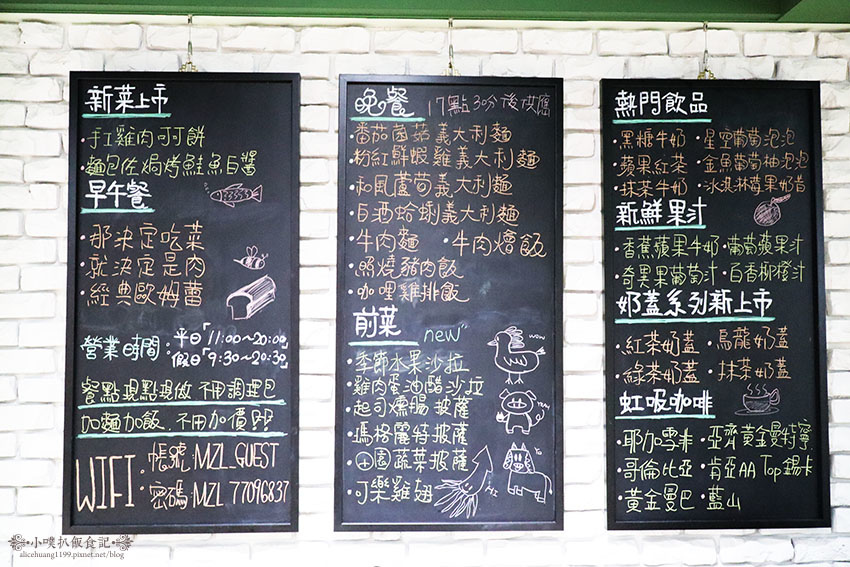 新菜上市
·手工雞肉可可餅
·麵包佐焗烤鮭魚白醬
早午餐
·那決定吃菜
·就決定是肉
·經典歐姆蕾
營業時間：平日「11:00~20:00」
假日「9:30~20:30」
餐點現點現做 不用調理包
加麵加飯.不用加價
WIFI
·帳號:MZL_GUEST
·密碼:MZL 77096837
晚餐 17點30分後供應
·番茄菌菇義大利麵
·粉紅鮮蝦雞義大利麵
·和風蘆荀義大利麵
·白酒蛤蜊義大利麵
·牛肉麵 ·牛肉燴飯
·照燒豬肉飯
·咖哩雞排飯
前菜 new"
·季節水果沙拉
·雞肉蛋油醋沙拉
·起司燻腸披薩
·瑪格麗特披薩
·田園蔬菜披薩
·可樂雞翅
wow
熱門飲品
·黑糖牛奶 ·星空葡萄泡泡
·蘋果紅茶 ·金魚葡萄柚泡泡
·抹茶牛奶 ·冰淇淋莓果奶昔
新鮮果汁
·香蕉蘋果牛奶 ·葡萄蘋果汁
·奇異果葡萄汁 ·白香柳橙汁
奶蓋系列新上市
·紅茶奶蓋 ·烏龍奶蓋
·綠茶奶蓋 ·抹茶奶蓋
虹吸咖啡
·耶加雪菲 ·亞齊黃金曼特寧
·哥倫比亞 ·肯亞AA Top錫卡
·黃金曼巴 ·藍山
小噗扒飯食記
alicehuang1199.pixnet.net/blog